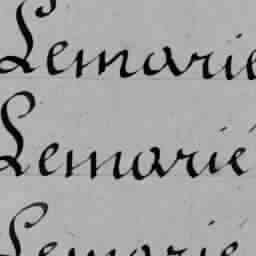 Lemarie
Lemarié
Lemarié